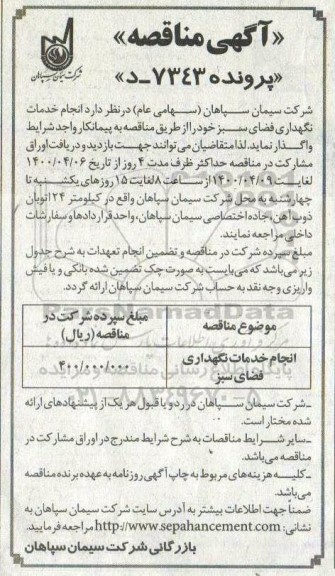 «آگهی مناقصه»
«پرونده ۷۳۴۳-د»
شرکت سیمان سپاهان
شرکت سیمان سپاهان (سهامی عام) درنظر دارد انجام خدمات
نگهداری فضای سبز خود را از طریق مناقصه به پیمانکار واجد شرایط
واگذار نماید. لذا متقاضیان می‌توانند جهت بازدید و دریافت اوراق
مشارکت در مناقصه حداکثر ظرف مدت ۴ روز از تاریخ ۱۴۰۰/۰۴/۰۶
لغایت ۱۴۰۰/۰۴/۰۹ از ساعت ۸ لغایت ۱۵ روزهای یکشنبه تا
چهارشنبه به محل شرکت سیمان سپاهان واقع در کیلومتر ۲۴ اتوبان
ذوب آهن، جاده اختصاصی سیمان سپاهان، واحد قراردادها و سفارشات
داخلی مراجعه نمایند.
مبلغ سپرده شرکت در مناقصه و تضمین انجام تعهدات به شرح جدول
زیر می‌باشد که می‌بایست به صورت چک تضمین شده بانکی و یا فیش
واریزی وجه نقد به حساب شرکت سیمان سپاهان ارائه گردد.
موضوع مناقصه
مبلغ سپرده شرکت در
مناقصه (ریال)
انجام خدمات نگهداری
فضای سبز
۴۰۰/۰۰۰/۰۰۰
-شرکت سیمان سپاهان در رد و یا قبول هریک از پیشنهادهای ارائه
شده مختار است.
-سایر شرایط مناقصات به شرح شرایط مندرج در اوراق مشارکت در
مناقصه می‌باشد.
-کلیه هزینه‌های مربوط به چاپ آگهی روزنامه به عهده برنده مناقصه
می‌باشد.
ضمناً جهت اطلاعات بیشتر به آدرس سایت شرکت سیمان سپاهان به
نشانی: http://www.sepahancement.com مراجعه فرمایید.
بازرگانی شرکت سیمان سپاهان